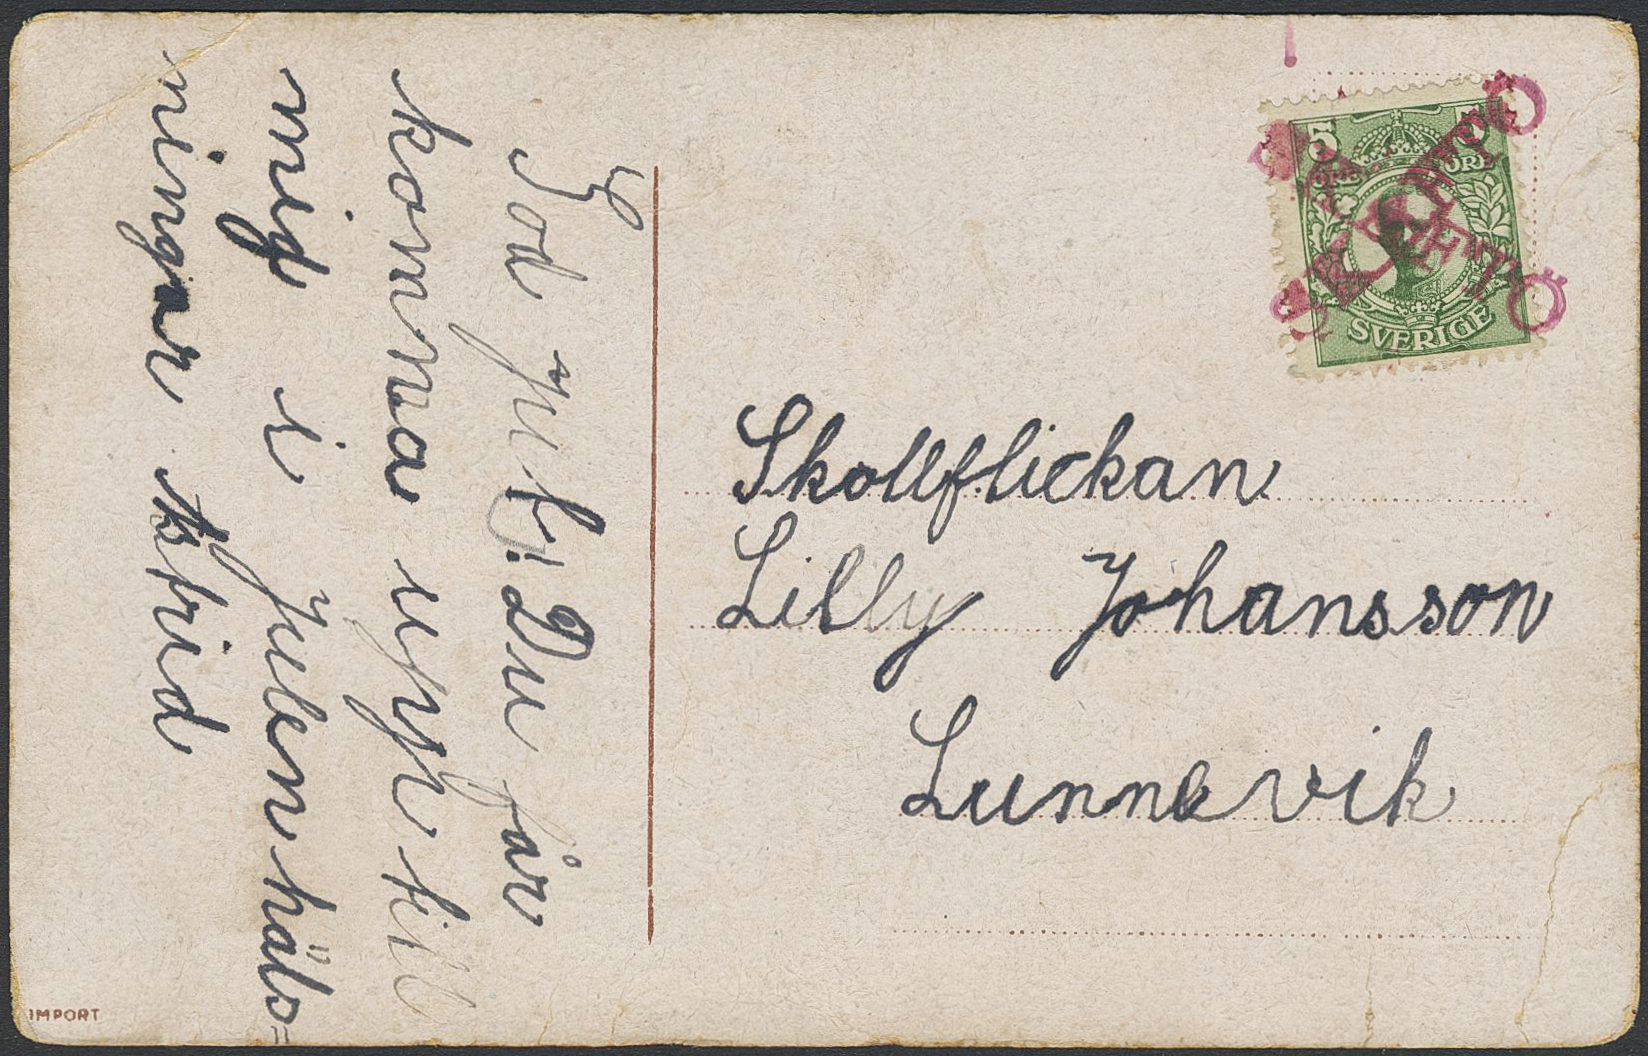 God Jul! Du får
komma upp till
mig i Julen häls=
ningar Astrid
5
ÖRE
SVERIGE
Skollflickan
Lilly Johansson
Lunnevik
IMPORT